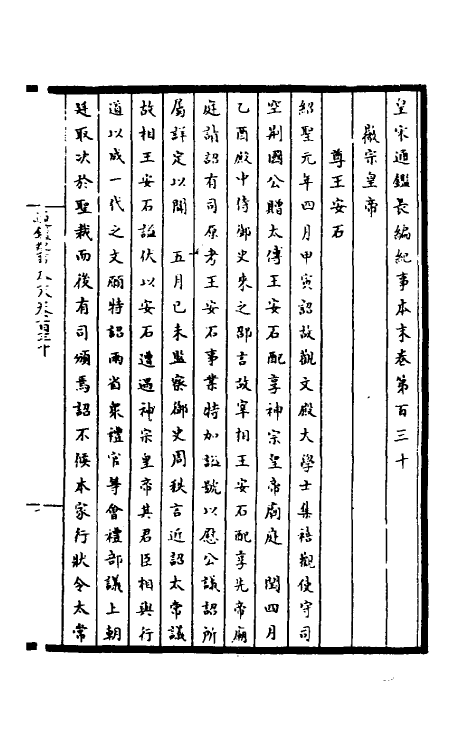 皇宋通鑑長編紀事本末卷第百三十
徽宗皇帝
尊王安石
紹聖元年四月甲寅詔故觀文殿大學士集禧觀使守司
空荆國公贈太傅王安石配享神宗皇帝廟庭 閏四月
乙酉殿中侍御史來之邵言故宰相王安石配享先帝廟
庭請詔有司原考王安石事業特加謚號以慰公議詔所
屬詳定以聞 五月己未監察御史周秩言近詔太常議
故相王安石謚伏以安石遭遇神宗皇帝其君臣相與行
道以成一代之文願特詔兩省衆禮官等會禮部議上朝
廷取決於聖裁而後有司頒焉詔不候本家行狀令太常